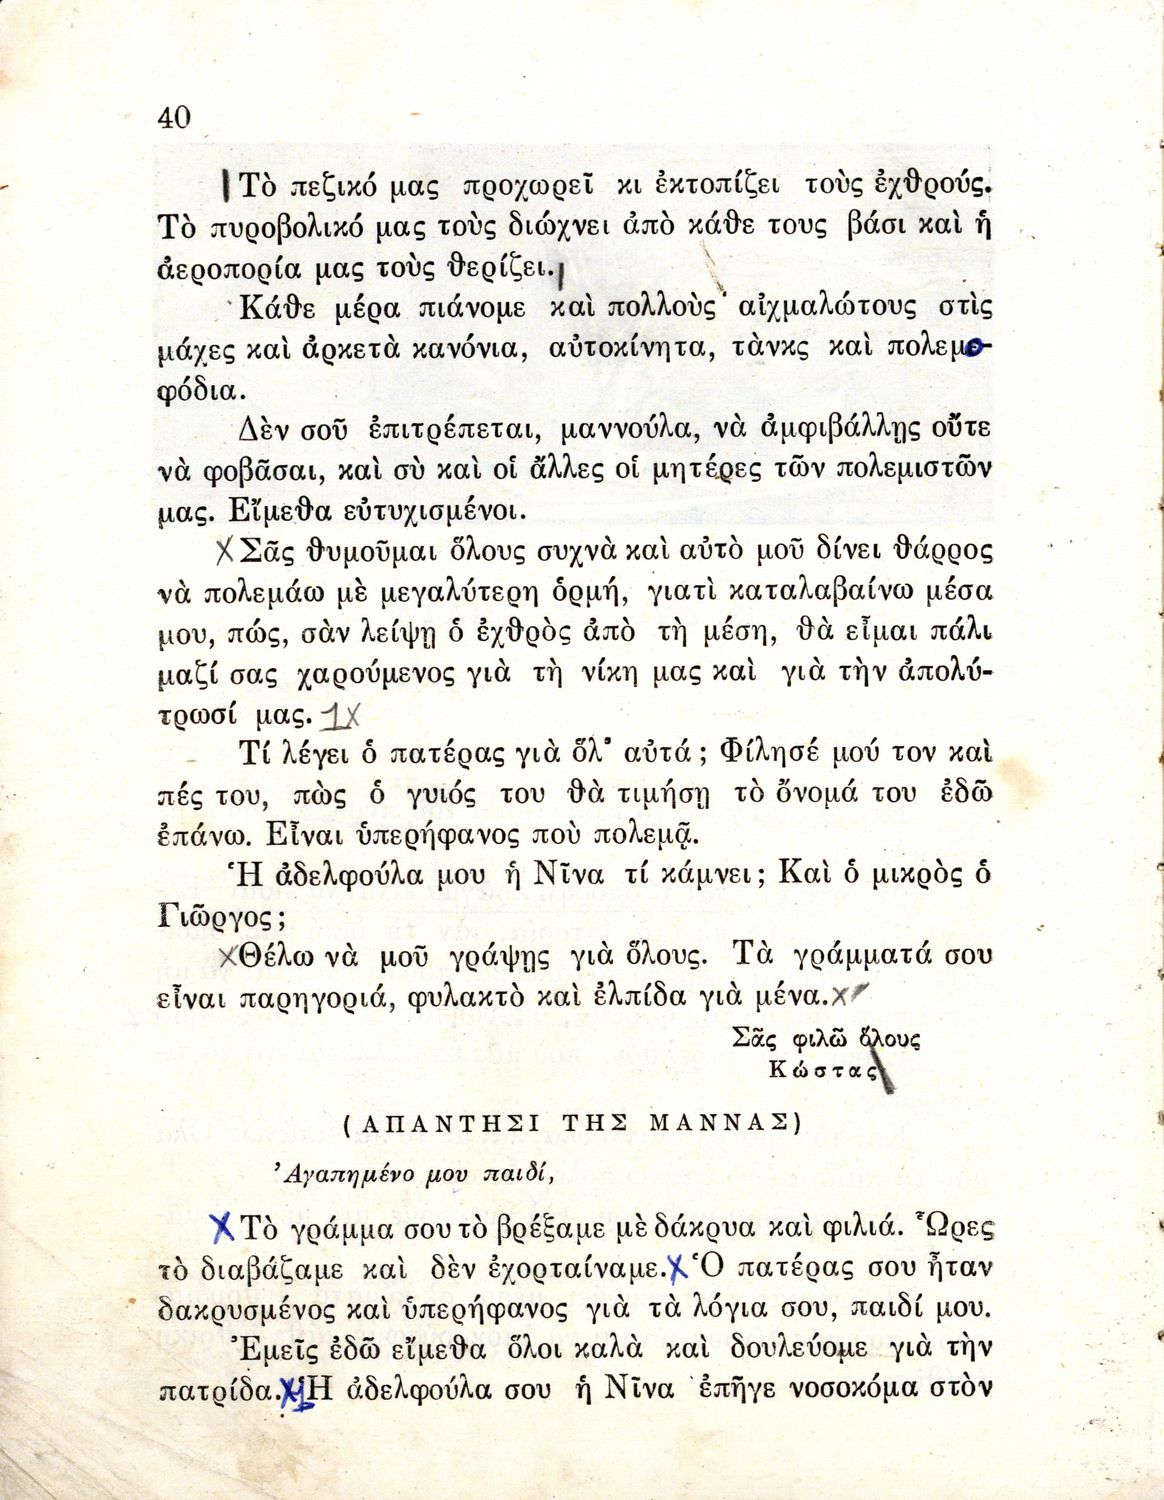 40
Τὸ πεζικό μας προχωρεῖ κι ἐκτοπίζει τοὺς ἐχθρούς.
Τὸ πυροβολικό μας τοὺς διώχνει ἀπὸ κάθε τους βάσι καὶ ἡ
ἀεροπορία μας τοὺς θερίζει.
Κάθε μέρα πιάνομε καὶ πολλοὺς αἰχμαλώτους στὶς
μάχες καὶ ἀρκετὰ κανόνια, αὐτοκίνητα, τὰνκς καὶ πολεμο-
φόδια.
Δὲν σοῦ ἐπιτρέπεται, μαννούλα, νὰ ἀμφιβάλλῃς οὔτε
νὰ φοβᾶσαι, καὶ σὺ καὶ οἱ ἄλλες οἱ μητέρες τῶν πολεμιστῶν
μας. Εἴμεθα εὐτυχισμένοι.
X Σᾶς θυμοῦμαι ὅλους συχνὰ καὶ αὐτὸ μοῦ δίνει θάρρος
νὰ πολεμάω μὲ μεγαλύτερη ὁρμή, γιατὶ καταλαβαίνω μέσα
μου, πώς, σὰν λείψῃ ὁ ἐχθρὸς ἀπὸ τὴ μέση, θὰ εἶμαι πάλι
μαζί σας χαρούμενος γιὰ τὴ νίκη μας καὶ γιὰ τὴν ἀπολύ-
τρωσί μας. 1X
Τί λέγει ὁ πατέρας γιὰ ὅλ' αὐτά; Φίλησέ μού τον καὶ
πές του, πὼς ὁ γυιός του θὰ τιμήσῃ τὸ ὄνομά του ἐδῶ
ἐπάνω. Εἶναι ὑπερήφανος ποὺ πολεμᾷ.
Ἡ ἀδελφούλα μου ἡ Νῖνα τί κάμνει; Καὶ ὁ μικρὸς ὁ
Γιῶργος;
X Θέλω νὰ μοῦ γράψῃς γιὰ ὅλους. Τὰ γράμματά σου
εἶναι παρηγοριά, φυλακτὸ καὶ ἐλπίδα γιὰ μένα. X
Σᾶς φιλῶ ὅλους
Κώστας
(ΑΠΑΝΤΗΣΙ ΤΗΣ ΜΑΝΝΑΣ)
Ἀγαπημένο μου παιδί,
X Τὸ γράμμα σου τὸ βρέξαμε μὲ δάκρυα καὶ φιλιά. Ὧρες
τὸ διαβάζαμε καὶ δὲν ἐχορταίναμε. X Ὁ πατέρας σου ἦταν
δακρυσμένος καὶ ὑπερήφανος γιὰ τὰ λόγια σου, παιδί μου.
Ἐμεῖς ἐδῶ εἴμεθα ὅλοι καλὰ καὶ δουλεύομε γιὰ τὴν
πατρίδα. X Ἡ ἀδελφούλα σου ἡ Νῖνα ἐπῆγε νοσοκόμα στὸν